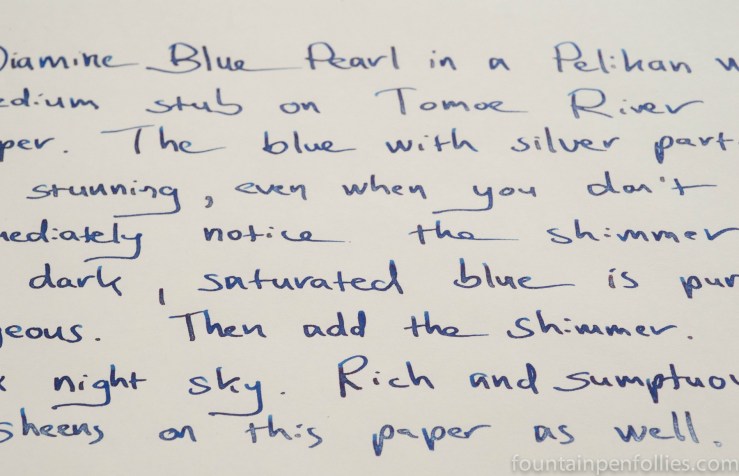 Diamine Blue Pearl in a Pelikan w
edium stub on Tomoe River
per. The blue with silver part
stunning, even when you don't
mediately notice the shimmer
dark, saturated blue is pur
geous. Then add the shimmer.
night sky. Rich and sumptuou
sheens on this paper as well.
fountainpenfollies.com